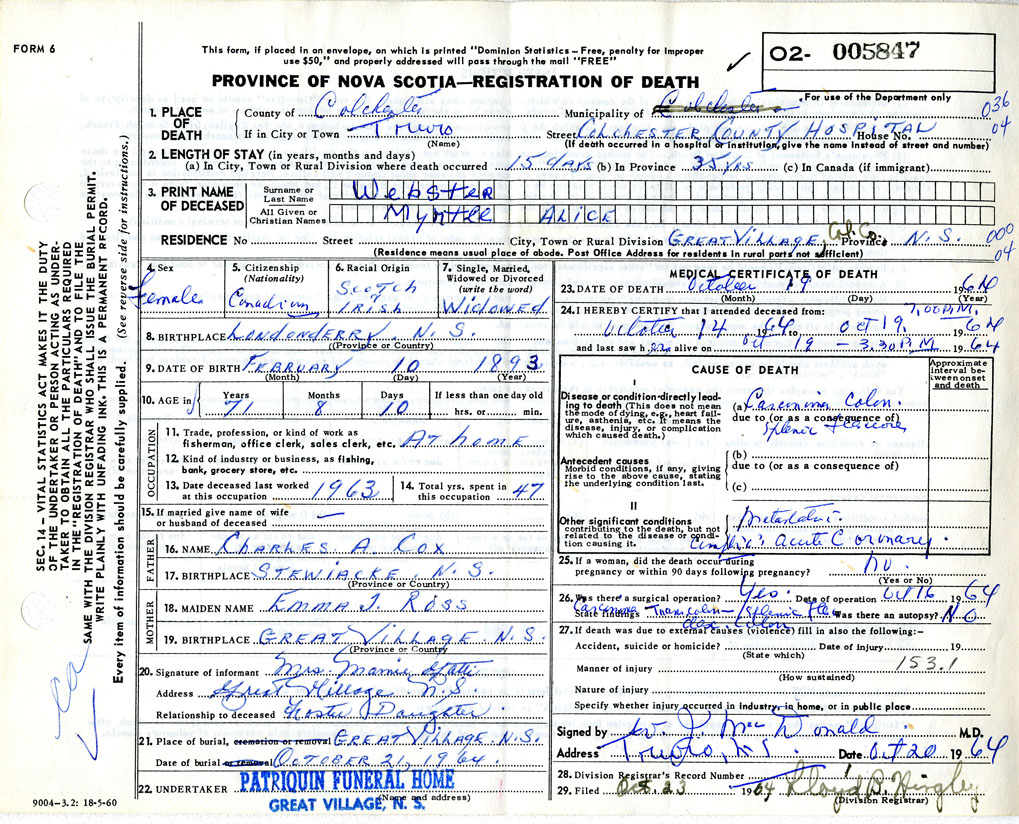 FORM 6
This form, if placed in an envelope, on which is printed "Dominion Statistics – Free, penalty for improper
use $50," and properly addressed will pass through the mail "FREE"
✓
O2- 005847
PROVINCE OF NOVA SCOTIA—REGISTRATION OF DEATH
For use of the Department only
1. PLACE OF DEATH
County of Colchester Municipality of Colchester 036
If in City or Town Truro Street COLCHESTER COUNTY HOSPITAL House No. 04
(Name) (If death occurred in a hospital or institution, give the name instead of street and number)
2. LENGTH OF STAY (in years, months and days)
(a) In City, Town or Rural Division where death occurred 15 days (b) In Province 35 yrs (c) In Canada (if immigrant)
3. PRINT NAME OF DECEASED
Surname or Last Name Webster
All Given or Christian Names Myrtle ALICE
RESIDENCE No Street City, Town or Rural Division GREAT VILLAGE, Col. Co. Province N.S. 000
(Residence means usual place of abode. Post Office Address for residents in rural parts not sufficient) 04
4. Sex Female
5. Citizenship (Nationality) Canadian
6. Racial Origin Scotch IRISH
7. Single, Married, Widowed or Divorced (write the word) Widowed
8. BIRTHPLACE LONDONDERRY N.S.
(Province or Country)
9. DATE OF BIRTH FEBRUARY 10 1893
(Month) (Day) (Year)
10. AGE in Years Months Days If less than one day old
71 8 10 hrs. or min.
OCCUPATION
11. Trade, profession, or kind of work as
fisherman, office clerk, sales clerk, etc. AT home
12. Kind of industry or business, as fishing,
bank, grocery store, etc.
13. Date deceased last worked at this occupation 1963
14. Total yrs. spent in this occupation 47
15. If married give name of wife
or husband of deceased —
FATHER
16. NAME CHARLES A. COX
17. BIRTHPLACE STEWIACKE, N.S.
(Province or Country)
MOTHER
18. MAIDEN NAME EMMA J. ROSS
19. BIRTHPLACE GREAT VILLAGE N.S.
(Province or Country)
20. Signature of informant Mrs. Mamie
Address Great Village N.S.
Relationship to deceased Foster Daughter
21. Place of burial, cremation or removal GREAT VILLAGE, N.S.
Date of burial or removal OCTOBER 21, 1964.
22. UNDERTAKER PATRIQUIN FUNERAL HOME
(Name and address)
GREAT VILLAGE, N. S.
9004-3.2: 18-5-60
MEDICAL CERTIFICATE OF DEATH
23. DATE OF DEATH October 19 1964
(Month) (Day) (Year)
7,00 P.M.
24. I HEREBY CERTIFY that I attended deceased from:
October 14 1964 to Oct 19, 1964
and last saw her alive on Oct 19 – 3.30 P.M. 1964
CAUSE OF DEATH
Approximate interval between onset and death
I
Disease or condition directly leading to death (This does not mean the mode of dying, e.g., heart failure, asthenia, etc. It means the disease, injury, or complication which caused death.)
(a) Carcinoma Colon.
due to (or as a consequence of)
Splenic Flexure
Antecedent causes
Morbid conditions, if any, giving rise to the above cause, stating the underlying condition last.
(b)
due to (or as a consequence of)
(c)
II
Other significant conditions
contributing to the death, but not related to the disease or condition causing it.
Acute Coronary.
25. If a woman, did the death occur during
pregnancy or within 90 days following pregnancy? No.
(Yes or No)
26. Was there a surgical operation? Yes. Date of operation Oct 16 1964
State findings Carcinoma Colon Was there an autopsy? No
27. If death was due to external causes (violence) fill in also the following:–
Accident, suicide or homicide? Date of injury 19
(State which)
Manner of injury 153.1
(How sustained)
Nature of injury
Specify whether injury occurred in industry, in home, or in public place
Signed by MacDonald M.D.
Address Truro, N.S. Date Oct 20 1964
28. Division Registrar's Record Number
29. Filed Oct. 23 1964 Lloyd B. Hingley
(Division Registrar)
SEC. 14 – VITAL STATISTICS ACT MAKES IT THE DUTY
OF THE UNDERTAKER OR PERSON ACTING AS UNDER-
TAKER TO OBTAIN ALL THE PARTICULARS REQUIRED
IN THE "REGISTRATION OF DEATH" AND TO FILE THE
SAME WITH THE DIVISION REGISTRAR WHO SHALL ISSUE THE BURIAL PERMIT.
WRITE PLAINLY WITH UNFADING INK. THIS IS A PERMANENT RECORD.
Every item of information should be carefully supplied. (See reverse side for instructions.)